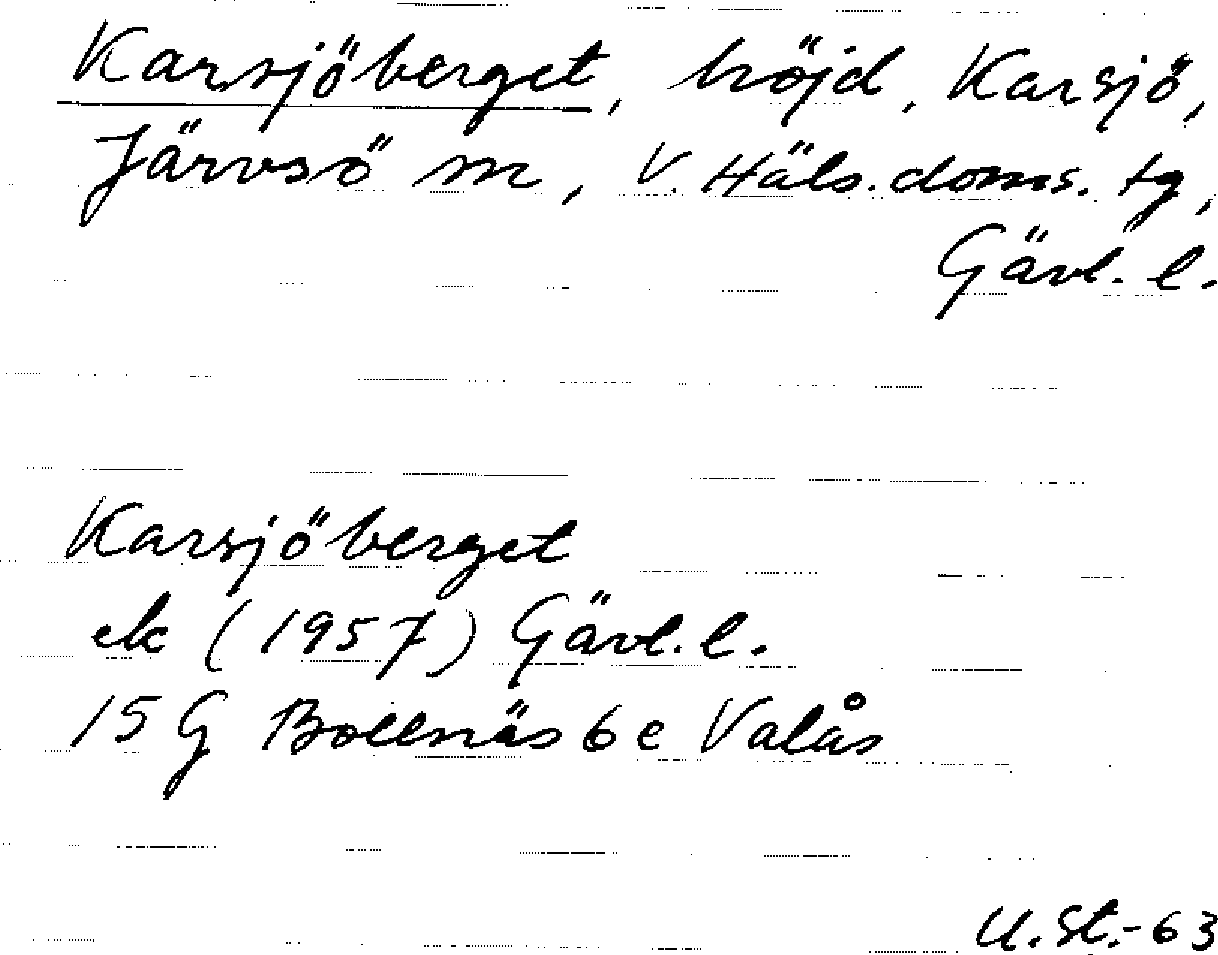 Karsjöberget, höjd, Karsjö,
Järvsö sn, V. Häls. doms. tg,
Gävl. l.
Karsjöberget
ek (1957) Gävl. l.
15 G Bollnäs 6 e Valås
U. St.-63